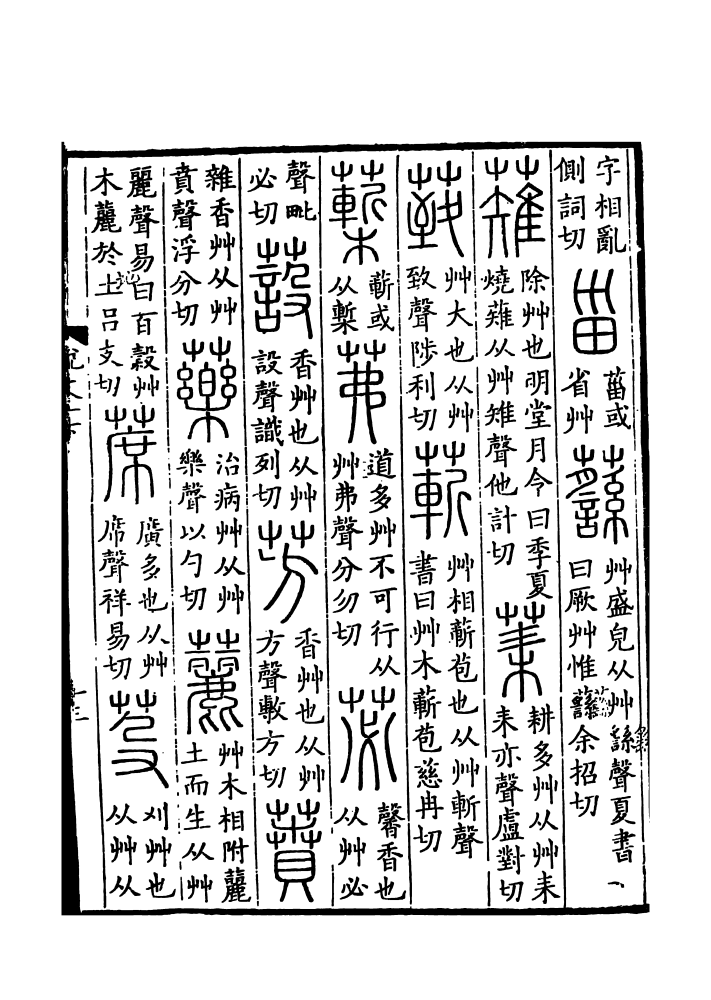 字相亂側詞切甾菑或省艸蘨艸盛皃从艸䌛聲夏書曰厥艸惟蘨余招切
薙除艸也明堂月令曰季夏燒薙从艸雉聲他計切耕多艸从艸耒耒亦聲盧對切
艸大也从艸致聲陟利切蔪艸相蔪苞也从艸斬聲書曰艸木蔪苞慈冉切
蔪或从槧茀道多艸不可行从艸弗聲分勿切苾馨香也从艸必
聲毗必切蔎香艸也从艸設聲識列切芳香艸也从艸方聲敷方切蕡
雜香艸从艸賁聲浮分切藥治病艸从艸樂聲以勺切䕻艸木相附䕻土而生从艸
麗聲易曰百穀艸木䕻於土呂支切蓆廣多也从艸席聲祥易切芟刈艸也从艸从